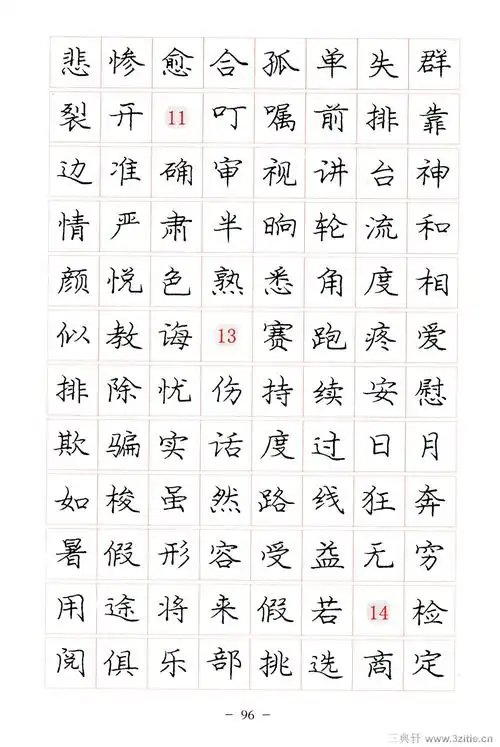 悲惨愈合孤单失群
裂开11叮嘱前排靠
边准确审视讲台神
情严肃半晌轮流和
颜悦色熟悉角度相
似教诲13赛跑疼爱
排除忧伤持续安慰
欺骗实话度过日月
如梭虽然路线狂奔
暑假形容受益无穷
用途将来假若14检
阅俱乐部挑选商定
- 96 -
三典轩 www.3zitie.cn